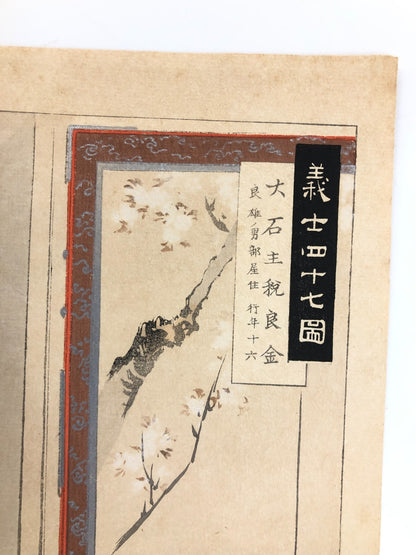 義士四十七圖
大石主税良金
良雄男部屋住 行年十六